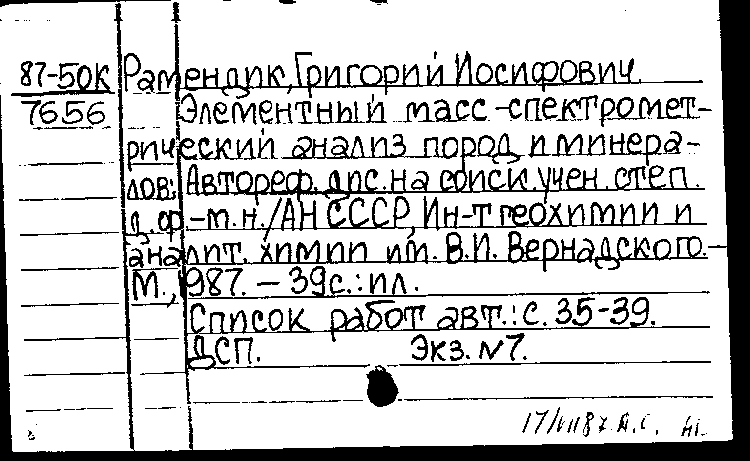 87-50К Рамендик, Григорий Иосифович
7656 Элементный масс-спектромет-
рический анализ пород и минера-
лов: Автореф. дис. на соиск. учен. степ.
д. ф.-м. н. / АН СССР, Ин-т геохимии и
аналит. химии им. В. И. Вернадского. -
М., 1987. - 39 с.: ил.
Список работ авт.: с. 35-39.
ДСП. Экз. N7.